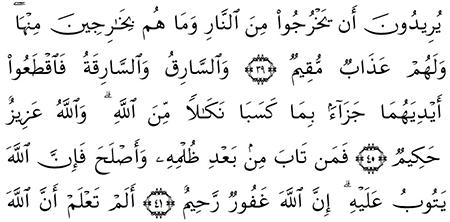 يُرِيدُونَ أَن يَخْرُجُوا۟ مِنَ ٱلنَّارِ وَمَا هُم بِخَٰرِجِينَ مِنْهَا ۖ
وَلَهُمْ عَذَابٌ مُّقِيمٌ ﴿٣٩﴾ وَٱلسَّارِقُ وَٱلسَّارِقَةُ فَٱقْطَعُوٓا۟
أَيْدِيَهُمَا جَزَآءًۢ بِمَا كَسَبَا نَكَٰلًا مِّنَ ٱللَّهِ ۗ وَٱللَّهُ عَزِيزٌ
حَكِيمٌ ﴿٤٠﴾ فَمَن تَابَ مِنۢ بَعْدِ ظُلْمِهِۦ وَأَصْلَحَ فَإِنَّ ٱللَّهَ
يَتُوبُ عَلَيْهِ ۗ إِنَّ ٱللَّهَ غَفُورٌ رَّحِيمٌ ﴿٤١﴾ أَلَمْ تَعْلَمْ أَنَّ ٱللَّهَ